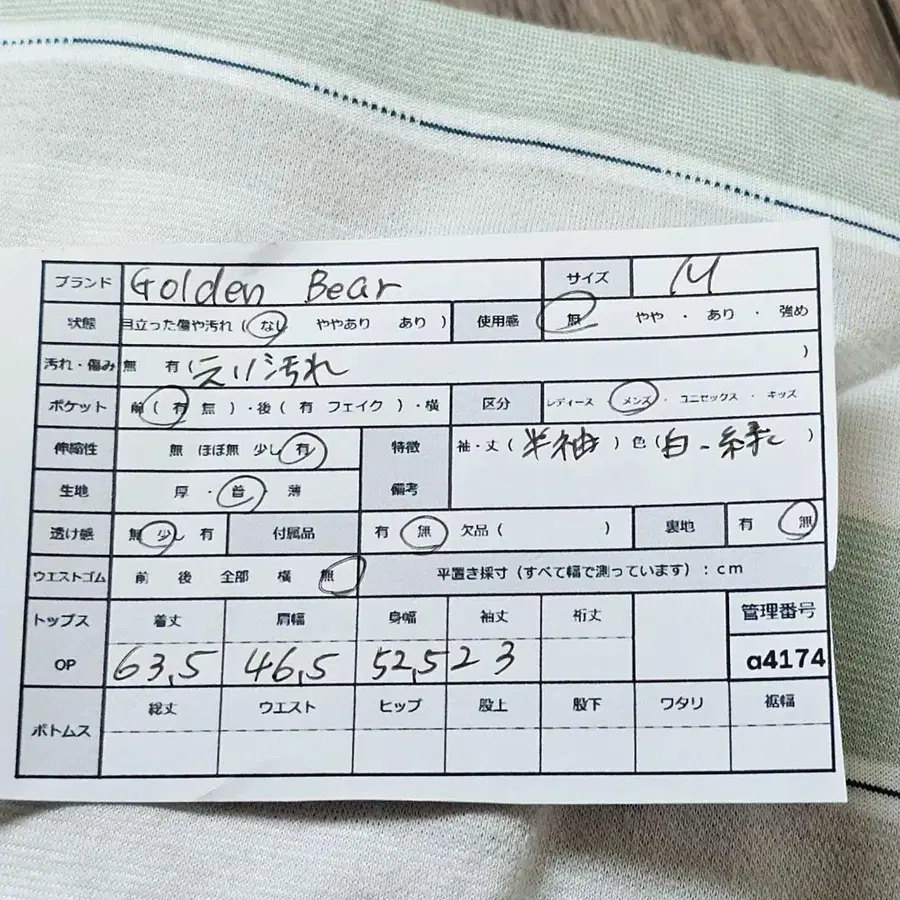 ブランド Golden Bear サイズ M
状態 目立った傷や汚れ（ なし ややあり あり ） 使用感 無 やや ・ あり ・ 強め
汚れ・傷み 無 有（えり汚れ ）
ポケット 前（ 有 無 ）・後（ 有 フェイク ）・横 区分 レディース メンズ ・ ユニセックス ・ キッズ
伸縮性 無 ほぼ無 少し 有 特徴 袖・丈（ 半袖 ） 色（白 - 緑 ）
生地 厚 ・ 普 ・ 薄 備考
透け感 無 少し 有 付属品 有 無 欠品（ ） 裏地 有 無
ウエストゴム 前 後 全部 横 無 平置き採寸（すべて幅で測っています）：cm
トップス 着丈 肩幅 身幅 袖丈 裄丈 管理番号
OP 63,5 46,5 52,5 23 a4174
ボトムス 総丈 ウエスト ヒップ 股上 股下 ワタリ 裾幅